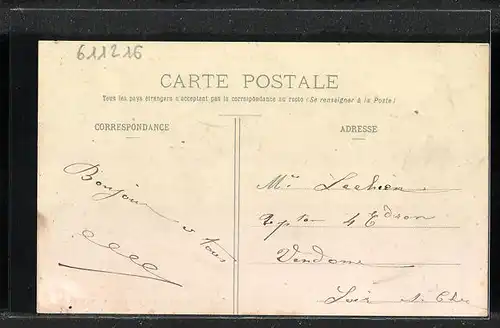 611216
CARTE POSTALE
Tous les pays étrangers n'acceptant pas la correspondance au recto (Se renseigner à la Poste)
CORRESPONDANCE
ADRESSE
Bonjour à tous
Mr
4
Vendome
Loir et Cher